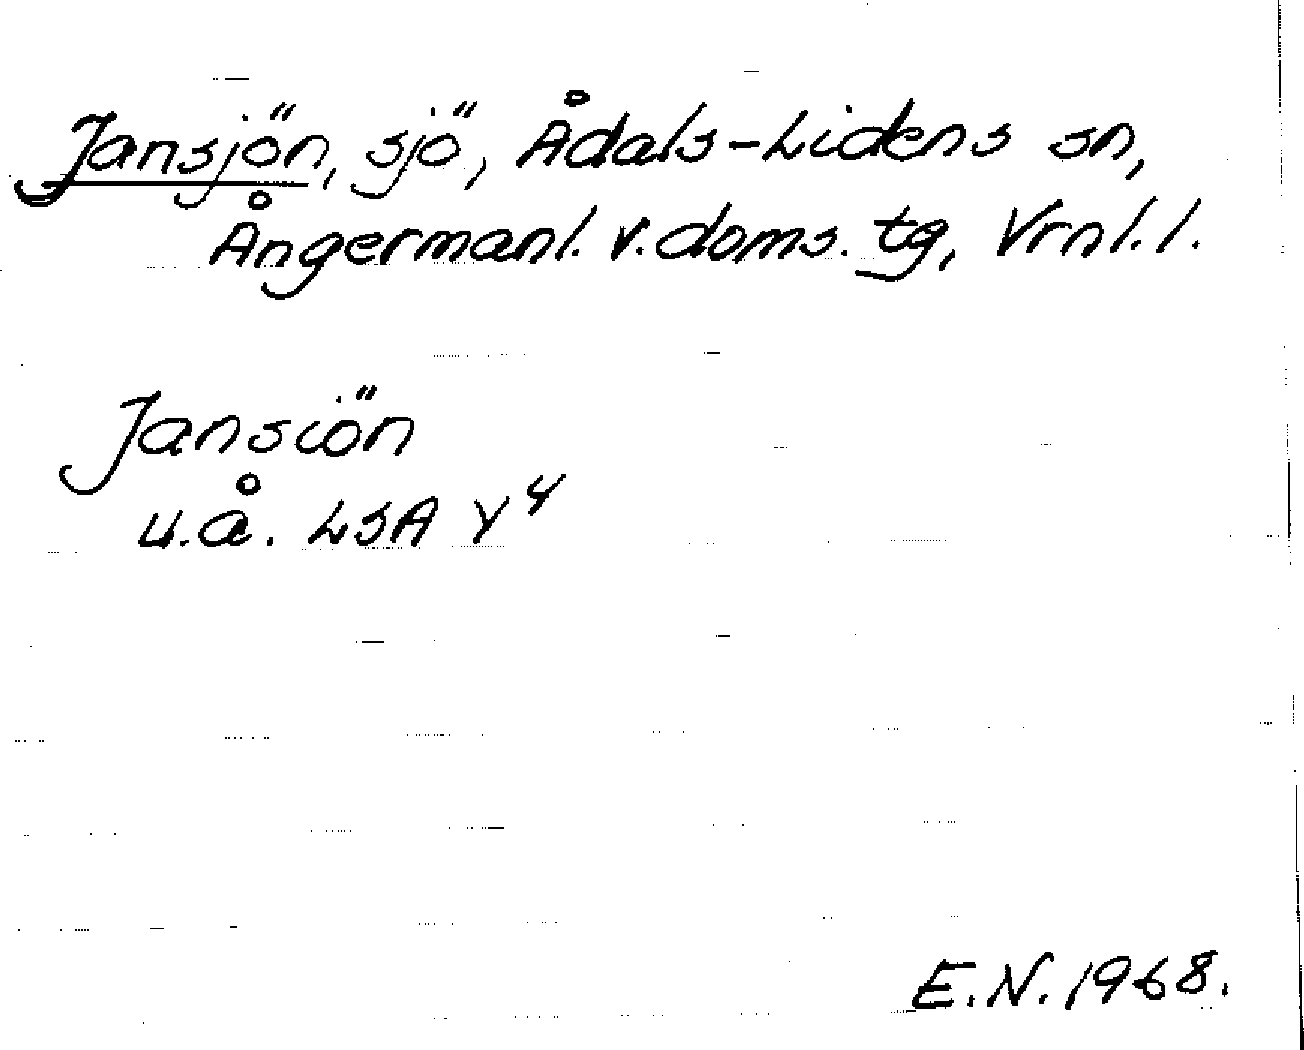 Jansjön, sjö, Ådals-Lidens sn,
Ångermanl. v. doms. tg, Vrnl. l.
Jansiön
u.å. LSA Y4
E.N. 1968.